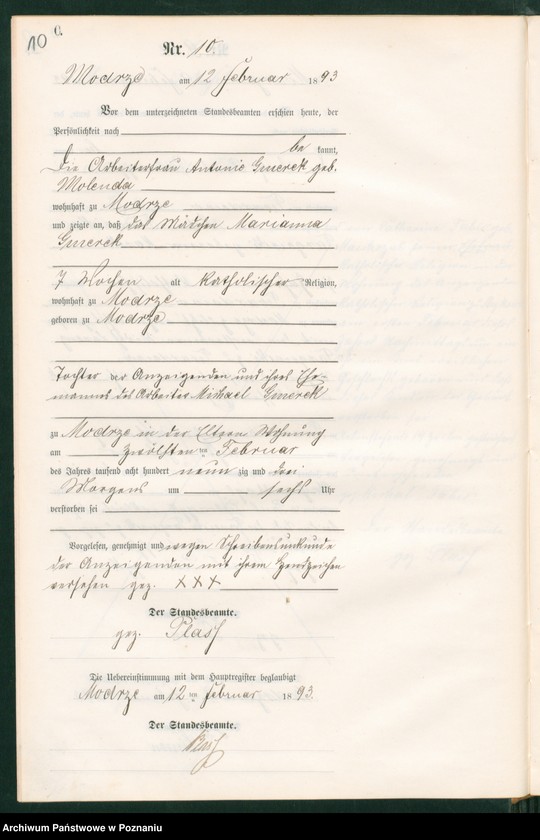 10
Nr. 10.
Modrze am 12 Februar 1893
Vor dem unterzeichneten Standesbeamten erschien heute, der
Persönlichkeit nach
be kannt,
Die Arbeiterfrau Antonie Gmerek geb.
Molenda
wohnhaft zu Modrze
und zeigte an, daß das Mädchen Marianna
Gmerek
7 Wochen alt katholischer Religion,
wohnhaft zu Modrze
geboren zu Modrze
Tochter der Anzeigenden und ihres Ehe-
mannes des Arbeiter Michael Gmerek
zu Modrze in der Eltern Wohnung
am zwölften ten Februar
des Jahres tausend acht hundert neun zig und drei
Morgens um sechs Uhr
verstorben sei
Vorgelesen, genehmigt und wegen Schreibensunkunde
der Anzeigenden mit ihrem Handzeichen
versehen gez. XXX
Der Standesbeamte.
gez. Plass
Die Uebereinstimmung mit dem Hauptregister beglaubigt
Modrze am 12 ten Februar 1893.
Der Standesbeamte.
Archiwum Państwowe w Poznaniu